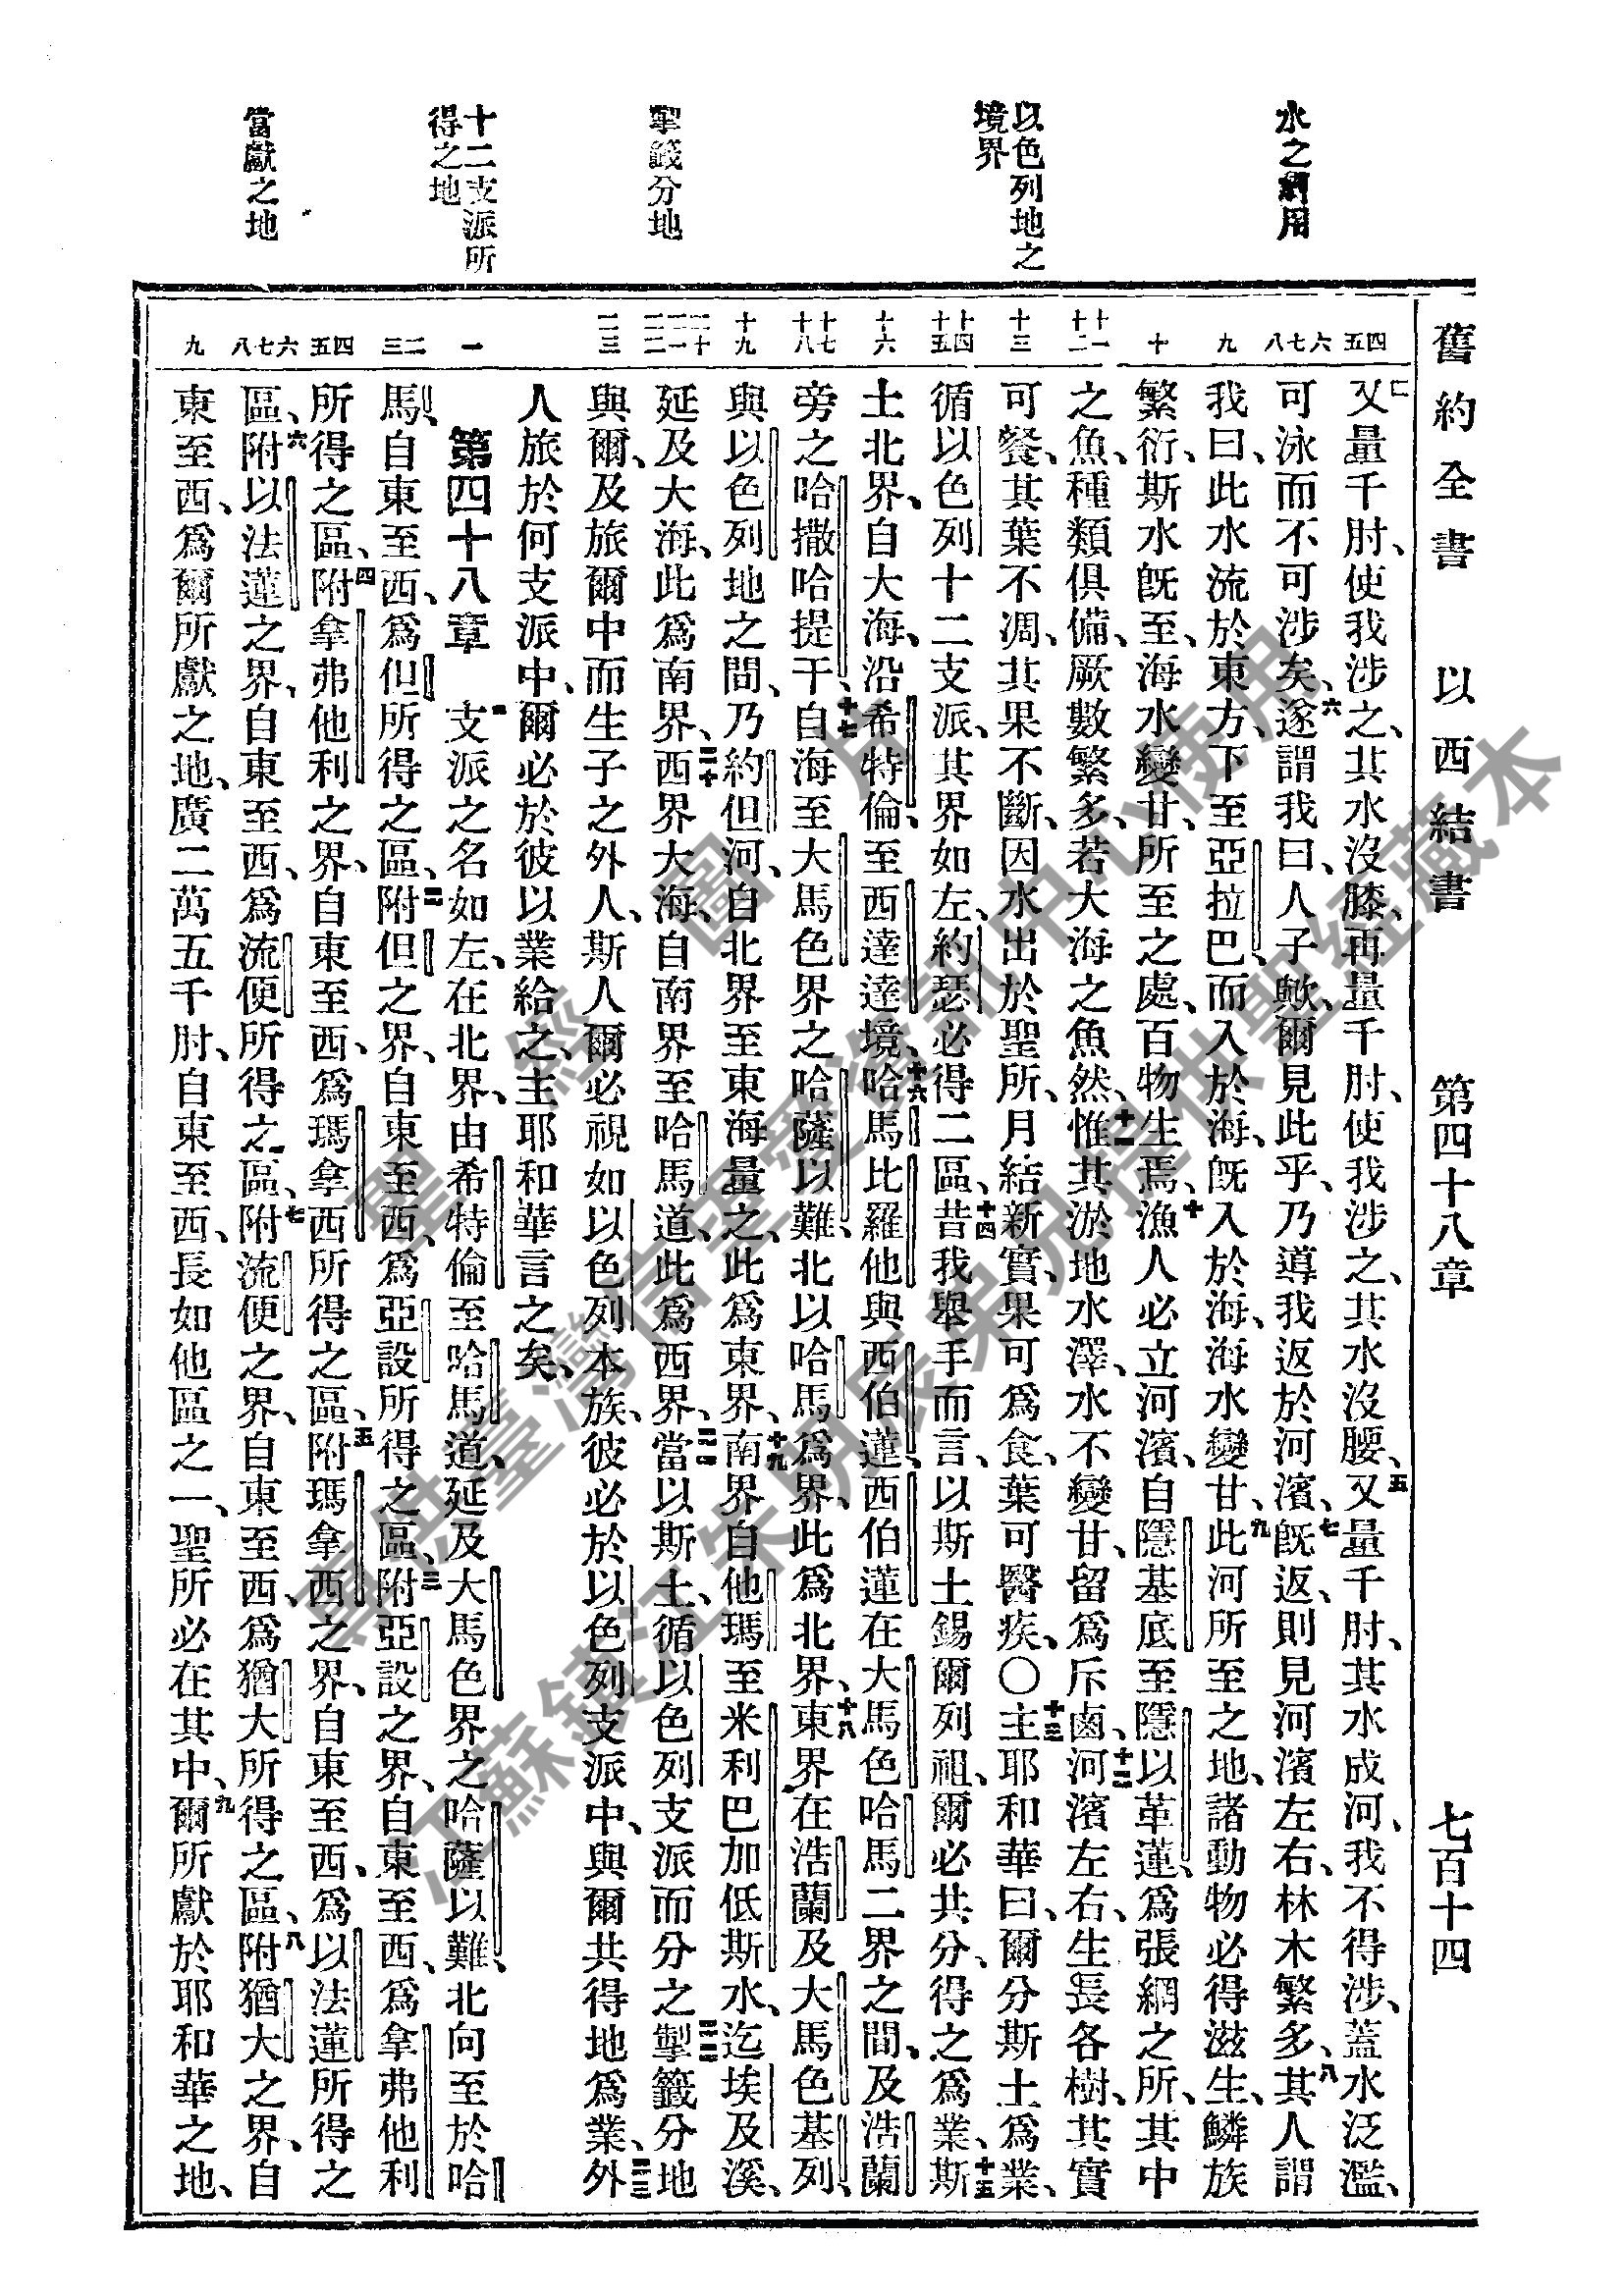 舊約全書 以西結書 第四十八章 七百十四
水之利用
以色列地之
境界
掣籤分地
十二支派所
得之地
當獻之地
四五
六七八
九
十
十一十二
十三
十四十五
十六
十七十八
十九
二十二一二二
二三
一
二三
四五
六七八
九
又量千肘、使我涉之、其水沒膝、再量千肘、使我涉之、其水沒腰、五又量千肘、其水成河、我不得涉、蓋水泛濫、
可泳而不可涉矣、六遂謂我曰、人子歟、爾見此乎、乃導我返於河濱、七旣返、則見河濱左右、林木繁多、八其人謂
我曰、此水流於東方、下至亞拉巴、而入於海、旣入於海、海水變甘、九此河所至之地、諸動物必得滋生、鱗族
繁衍、斯水旣至、海水變甘、所至之處、百物生焉、十漁人必立河濱、自隱基底至隱以革蓮、爲張網之所、其中
之魚、種類俱備、厥數繁多、若大海之魚然、十一惟其淤地水澤、水不變甘、留爲斥鹵、十二河濱左右、生長各樹、其實
可餐、其葉不凋、其果不斷、因水出於聖所、月結新實、果可爲食、葉可醫疾、〇十三主耶和華曰、爾分斯土爲業、
循以色列十二支派、其界如左、約瑟必得二區、十四昔我舉手而言、以斯土錫爾列祖、爾必共分、得之爲業、十五斯
土北界、自大海、沿希特倫、至西達達境、十六哈馬比羅他與西伯蓮、西伯蓮在大馬色哈馬二界之間、及浩蘭
旁之哈撒哈提干、十七自海至大馬色界之哈薩以難、北以哈馬爲界、此爲北界、十八東界在浩蘭及大馬色基列、
與以色列地之間、乃約但河、自北界至東海量之、此爲東界、十九南界自他瑪至米利巴加低斯水、迄埃及溪、
延及大海、此爲南界、二十西界大海、自南界至哈馬道、此爲西界、二一當以斯土、循以色列支派而分之、二二掣籤分地
與爾、及旅爾中而生子之外人、斯人爾必視如以色列本族、彼必於以色列支派中、與爾共得地爲業、二三外
人旅於何支派中、爾必於彼以業給之、主耶和華言之矣、
第四十八章 一支派之名如左、在北界、由希特倫至哈馬道、延及大馬色界之哈薩以難、北向至於哈
馬、自東至西、爲但所得之區、二附但之界、自東至西、爲亞設所得之區、三附亞設之界、自東至西、爲拿弗他利
所得之區、四附拿弗他利之界、自東至西、爲瑪拿西所得之區、五附瑪拿西之界、自東至西、爲以法蓮所得之
區、六附以法蓮之界、自東至西、爲流便所得之區、七附流便之界、自東至西、爲猶大所得之區、八附猶大之界、自
東至西、爲爾所獻之地、廣二萬五千肘、自東至西、長如他區之一、聖所必在其中、九爾所獻於耶和華之地、
聖經圖片
專供臺灣信望愛資訊中心使用
江蘇鎮江朱朔辰弟兄提供聖經藏本